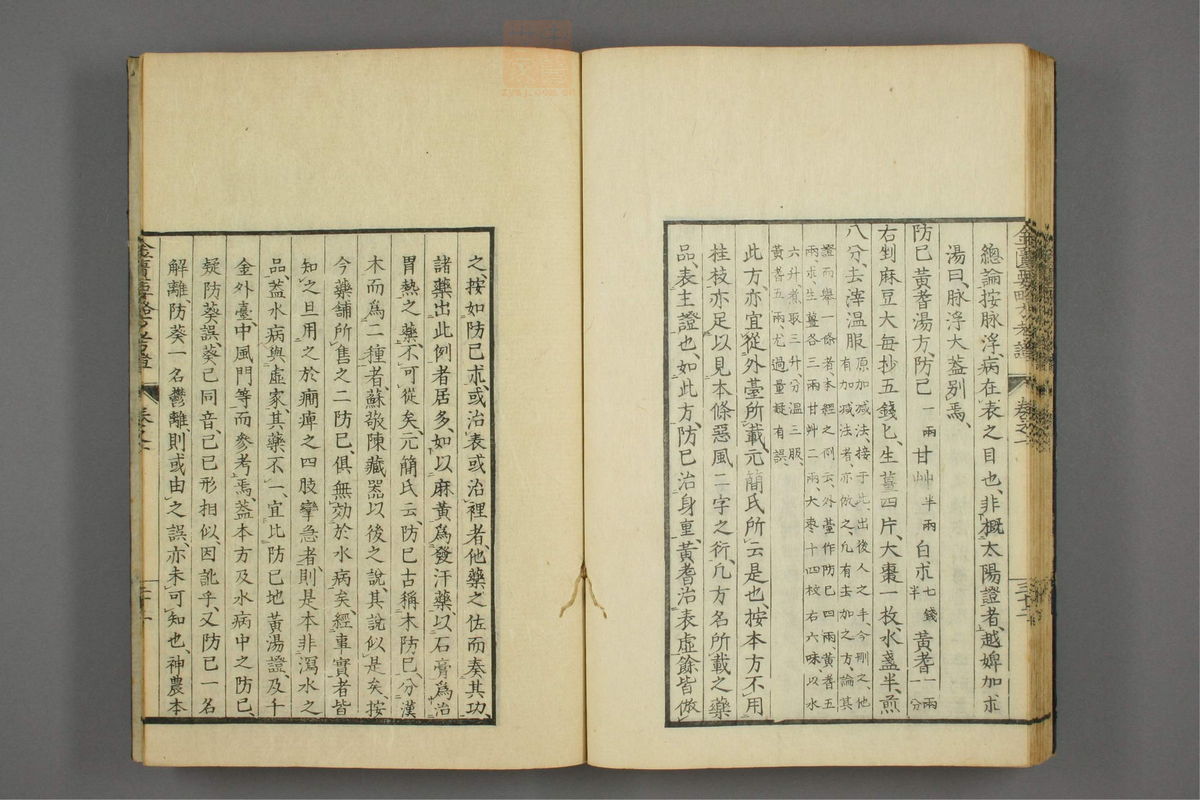 總論按脉浮病在表之目也、非概太陽證者、越婢加朮
湯曰、脉浮大蓋别焉、
防已黃耆湯方、防已一兩甘艸半兩白朮七錢半黃耆一兩一分
右剉麻豆大每抄五錢匕、生薑四片、大棗一枚、水盞半、煎
八分、去滓溫服原加减法、接于此、出後人之手、今刪之、他有加减法者、亦倣之、凡有去加之方、論其
證而擧一條者、本經之例云、外臺作防已四兩黃耆五兩、朮、生薑各三兩甘艸二兩大枣十四枚右六味、以水
六升、煮取三升分溫三服、黃耆五兩、尤過量疑有誤、
此方、亦宜從外臺所載、元簡氏所云是也、按本方不用
桂枝亦足以見本條惡風二字之衍、凡方名所載之藥
品、表主證也、如此方、防已治身重、黃耆治表虛餘皆倣
之、按如防已朮、或治表或治裡者、他藥之佐而奏其功、
諸藥出此例者居多、如以麻黃爲發汗藥、以石膏爲治
胃熱之藥、不可從矣、元簡氏云防已古稱木防已、分漢
木而爲二種者、蘇敬陳藏器以後之說、其說似是矣、按
今藥舖所售之二防已、俱無効於水病矣、經事實者皆
知之且用之於癎痺之四肢攣急者、則是本非瀉水之
品、蓋水病與虛家、其藥不一、宜比防已地黃湯證、及千
金外臺、中風門等而參考焉、蓋本方及水病中之防已、
疑防葵誤、葵已同音、已已形相似、因訛乎、又防已一名
解離、防葵一名鬱離、則或由之誤、亦未可知也、神農本